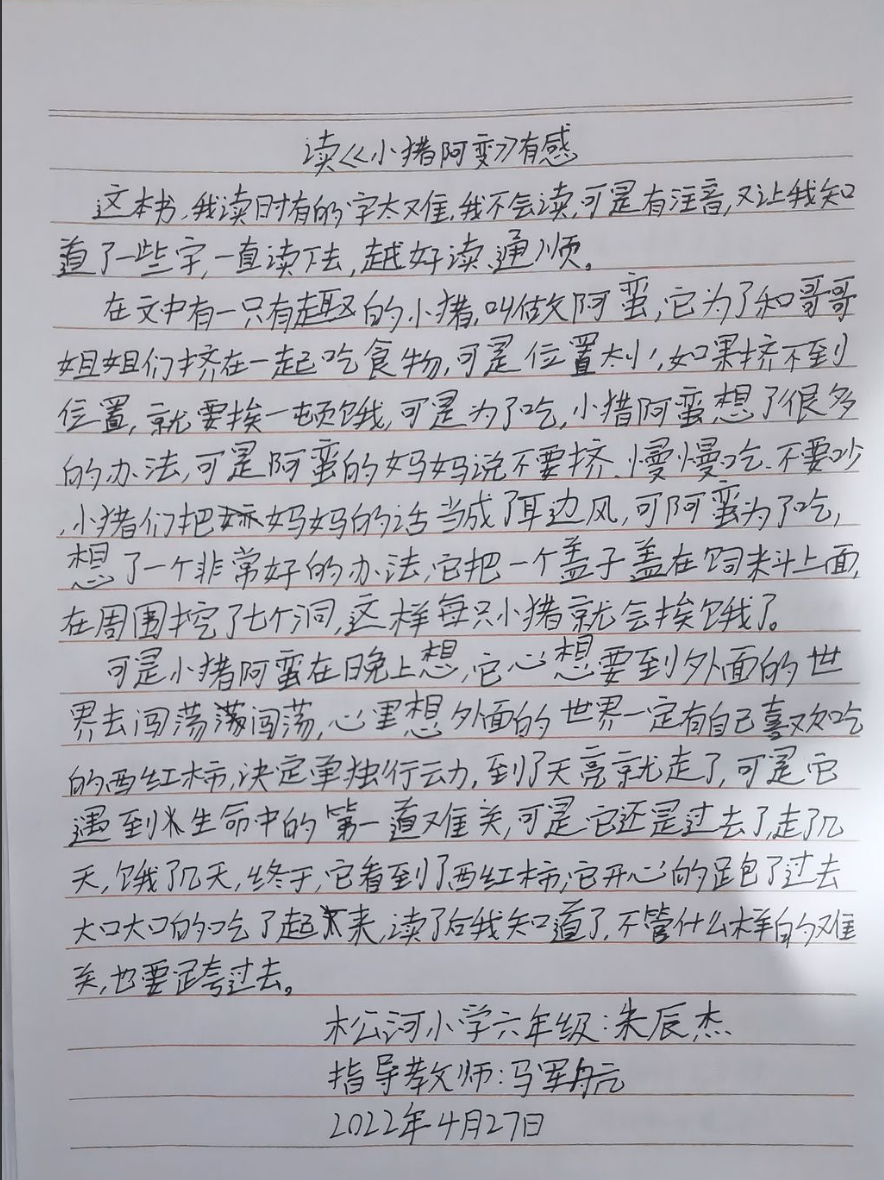 读《小猪阿蛮》有感
这本书,我读时有的字太难,我不会读,可是有注音,又让我知
道了一些字,一直读下去,越好读、通顺。
在文中有一只有趣的小猪,叫做阿蛮,它为了和哥哥
姐姐们挤在一起吃食物,可是位置太小,如果挤不到
位置,就要挨一顿饿,可是为了吃,小猪阿蛮想了很多
的办法,可是阿蛮的妈妈说不要挤、慢慢吃、不要吵
,小猪们把妈妈的话当成了耳边风,可阿蛮为了吃,
想了一个非常好的办法,它把一个盖子盖在饲料斗上面,
在周围挖了七个洞,这样每只小猪就会挨饿了。
可是小猪阿蛮在晚上想,它心想要到外面的世
界去闯荡闯荡,心里想外面的世界一定有自己喜欢吃
的西红柿,决定单独行动,到了天亮就走了,可是它
遇到生命中的第一道难关,可是它还是过去了,走了几
天,饿了几天,终于,它看到了西红柿,它开心的跑了过去
大口大口的吃了起来,读了后我知道了,不管什么样的难
关,也要跨过去。
松河小学六年级:朱辰杰
指导教师:马军航
2022年4月27日